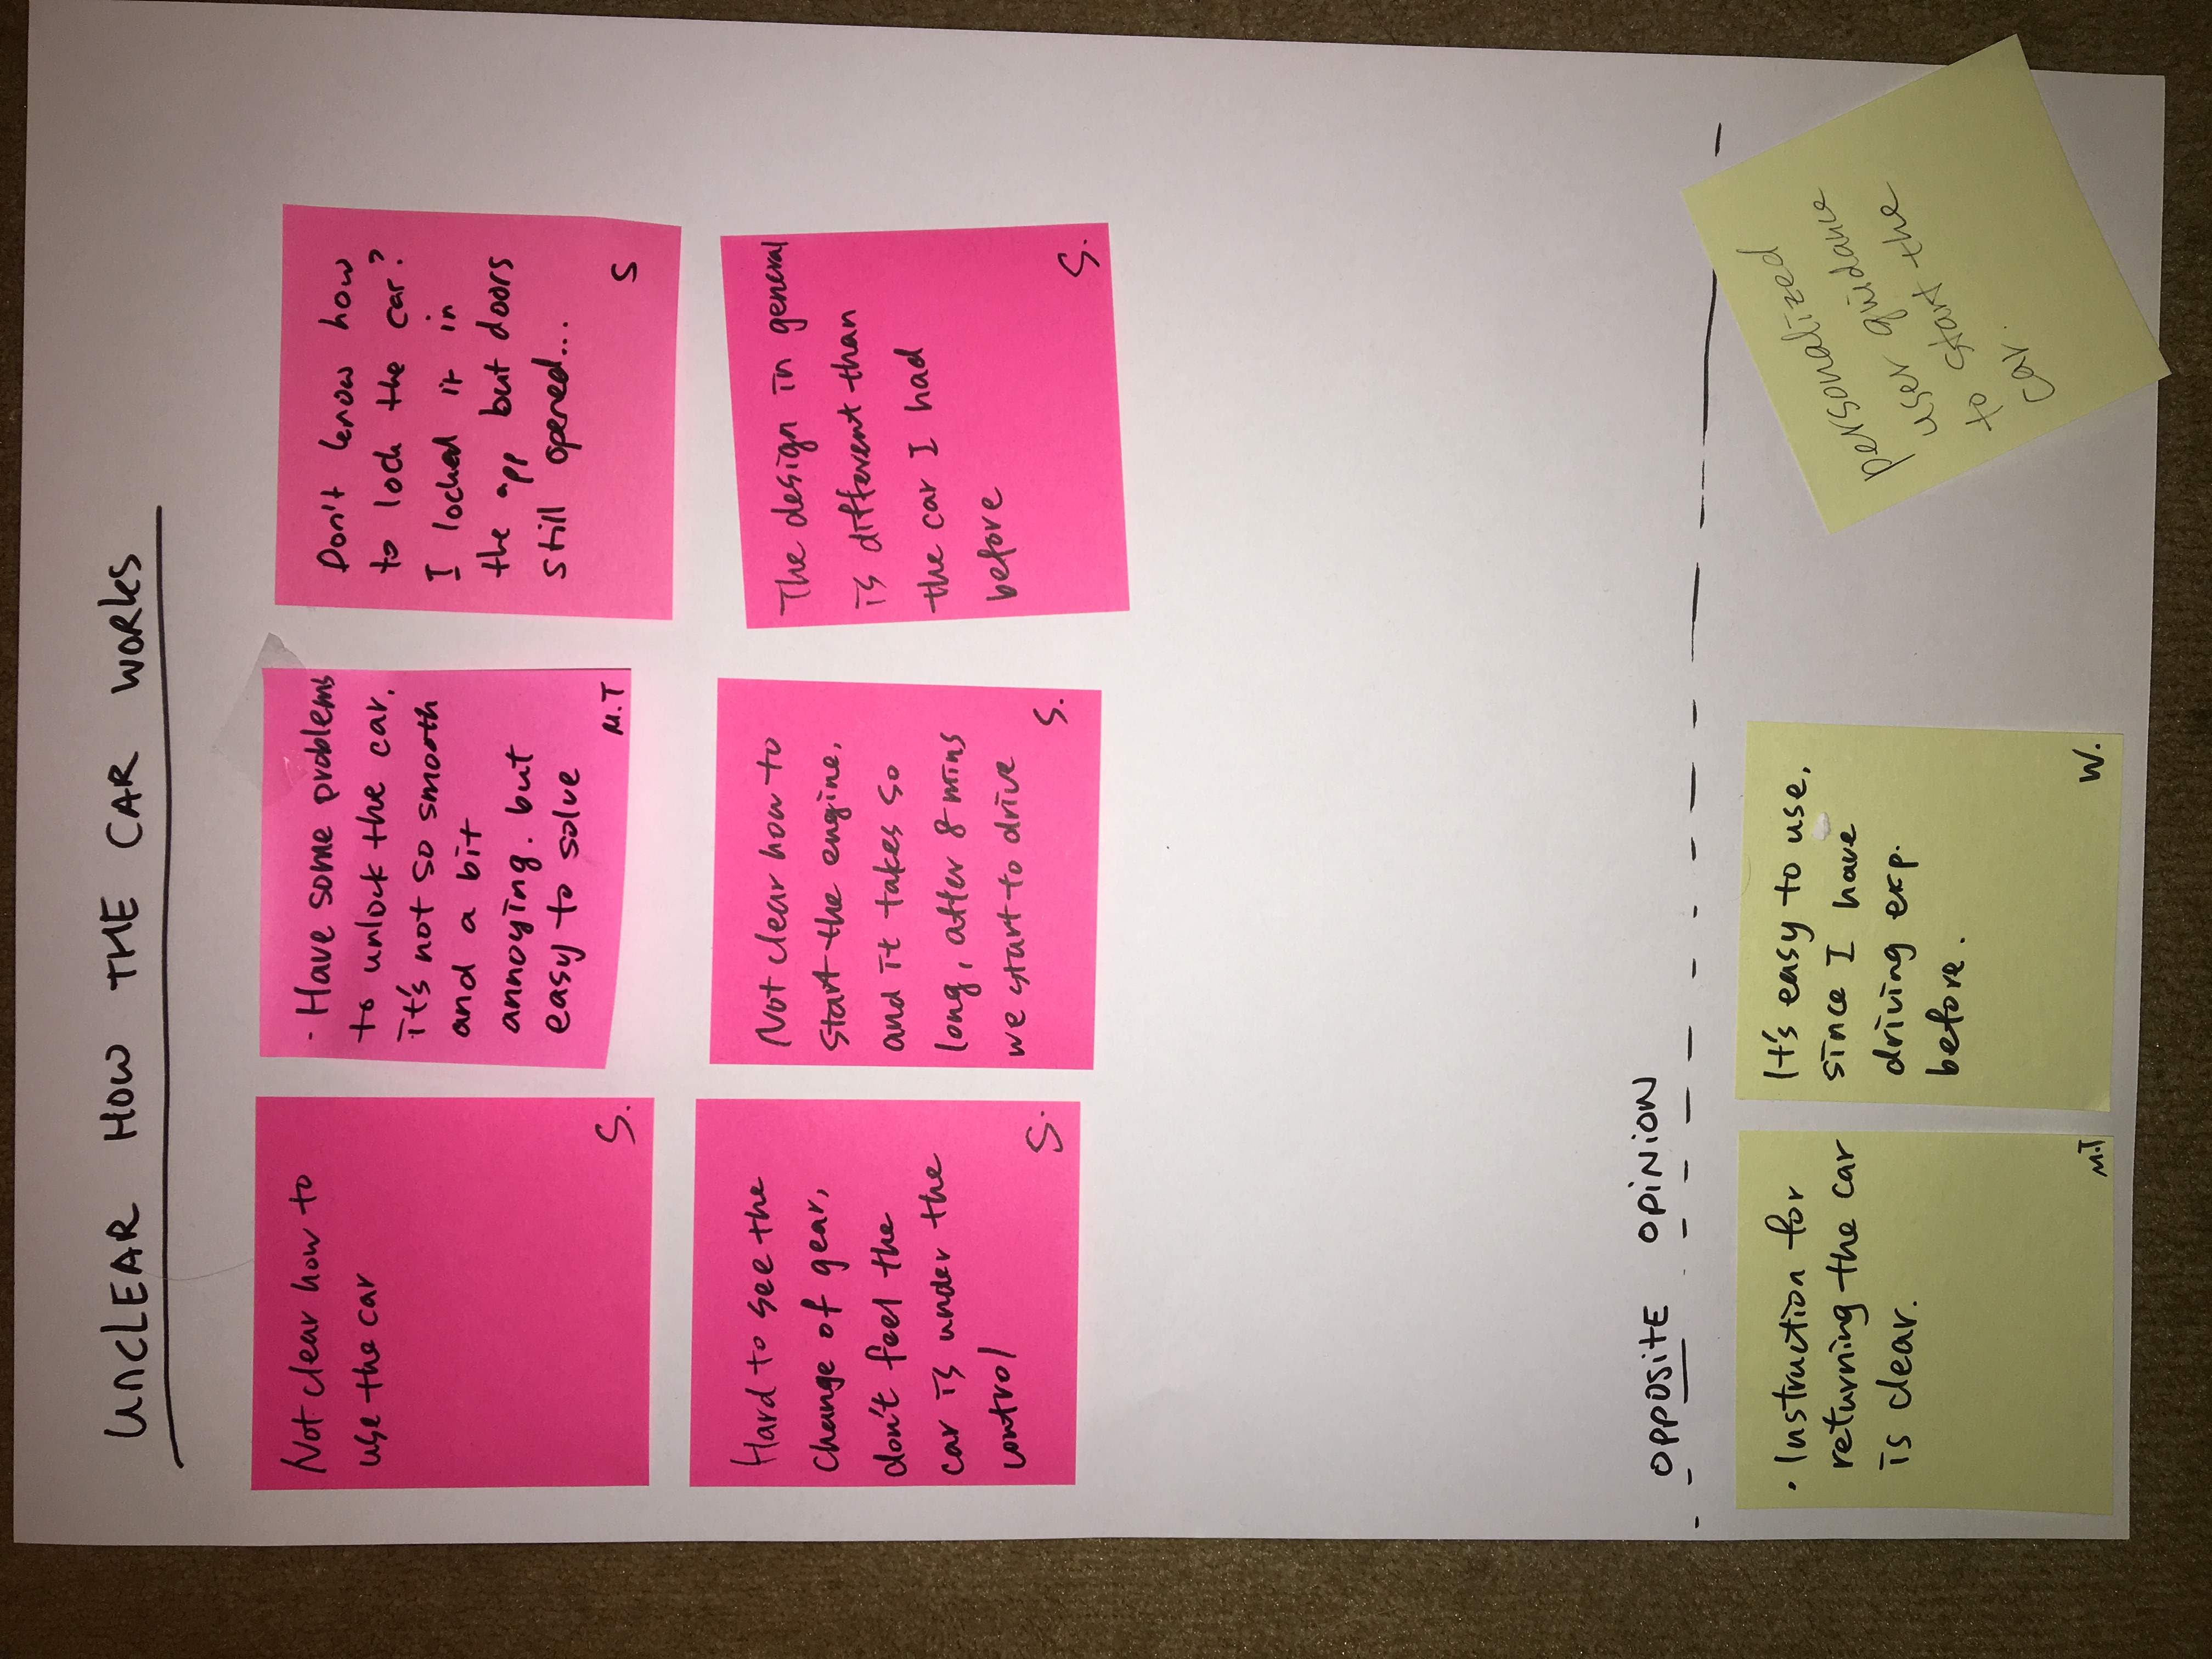 UNCLEAR HOW THE CAR WORKS
Not clear how to
use the car
S.
· Have some problems
to unlock the car.
it's not so smooth
and a bit
annoying. but
easy to solve
M.T
Don't know how
to lock the car?
I locked it in
the app but doors
still opened...
S
Hard to see the
change of gear,
don't feel the
car is under the
control
S.
Not clear how to
start the engine,
and it takes so
long, after 8 mins
we start to drive
S.
The design in general
is different than
the car I had
before
S.
OPPOSITE OPINION
· Instruction for
returning the car
is clear.
M.T
It's easy to use,
since I have
driving exp.
before.
W.
personalized
user guidance
to start the
car.